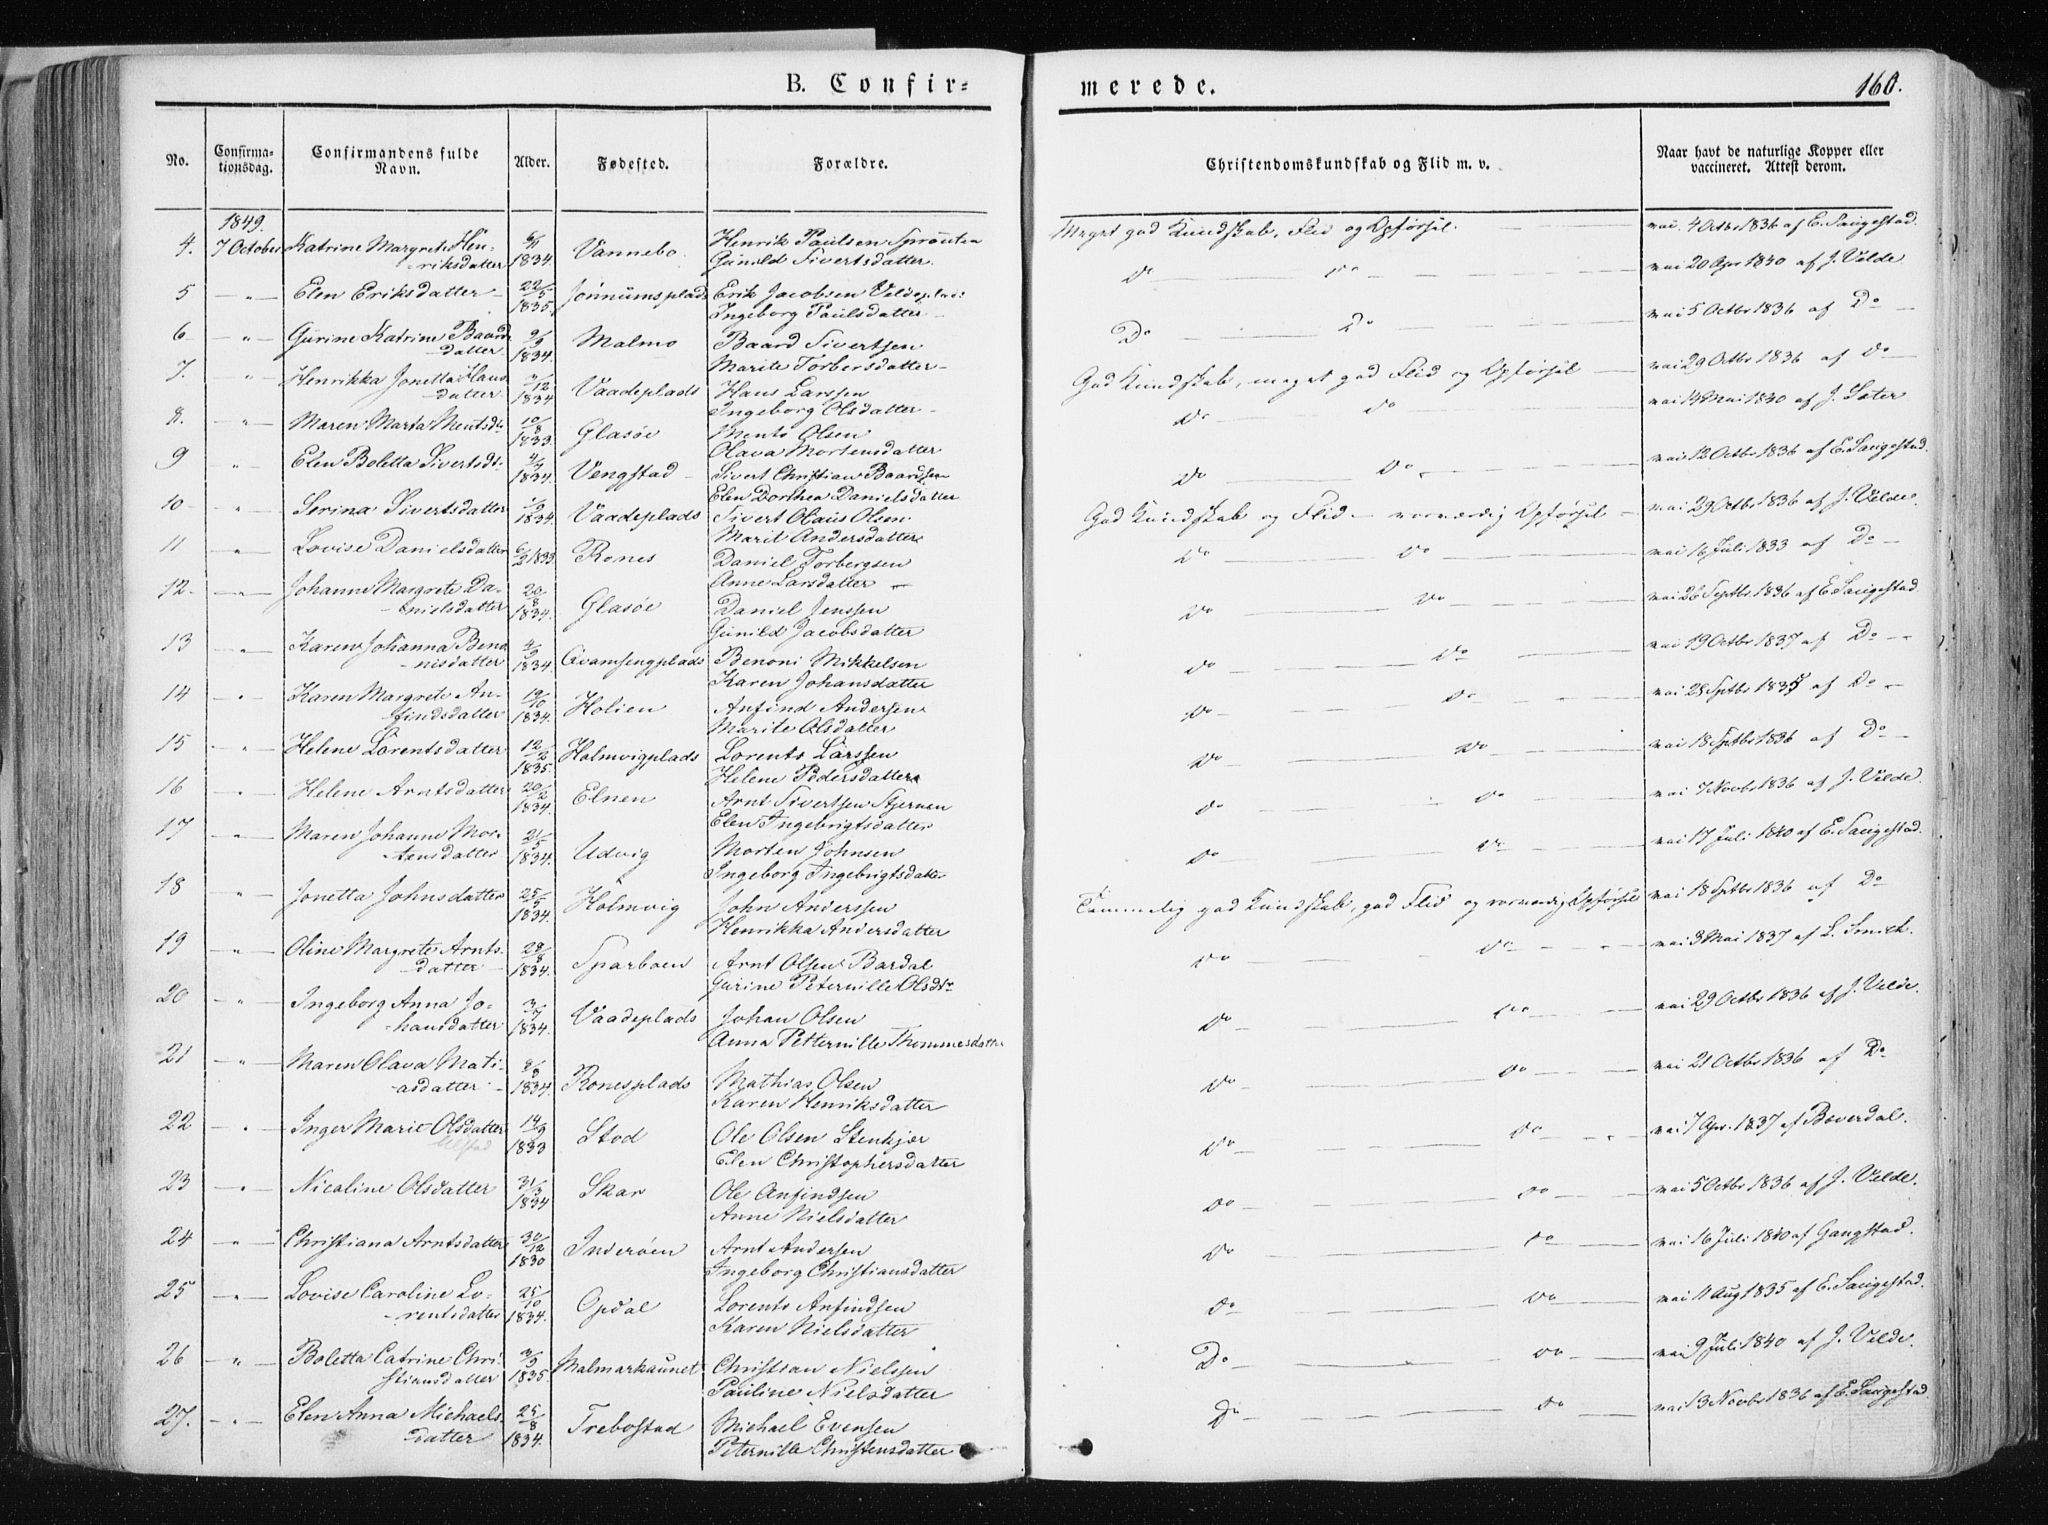 B. Confir-
merede.
160.
No.
Confirma-
tionsdag.
Confirmandens fulde
Navn.
Alder.
Fødested.
Forældre.
Christendomskundskab og Flid m. v.
Naar havt de naturlige Kopper eller
vaccineret. Attest derom.
1849.
4. 7 October Katrine Margrete Hen-
riksdatter 1834 Vannebo Henrik Paulsen
Gunild Sivertsdatter.
Meget god Kundskab, Flid og Opførsel. vac. 4 Octbr 1836 af E. Saugestad.
5 " Elen Eriksdatter 22/5 1835. Erik Jacobsen
Ingeborg Paulsdatter
Do Do vac 20 Apr 1840 af J. Velde
6 " Gurine Katrine Baards-
datter 9/9 1834. Malmo Baard Sivertsen
Marite Torbersdatter
Do Do vac 5 Octbr 1836 af Do
7. " Henrikka Jonetta Hans-
datter /12 1834 Vaadeplads Hans Larssen
Ingeborg Olsdatter
God Kundskab, meget god Flid og Opførsel vac 29 Octbr 1836 af do
8. " Maren Marta Mentsdt. 10/8 1833. Glasøe Ments Olsen
Olava Mortensdatter
Do Do vac 14 Mai 1840 af J. Sater
9 " Elen Boletta Sivertsdt. 1834. Vengstad Sivert Christian Baardsen
Elen Dorthea Danielsdatter
Do Do vac 12 Octbr 1836 af E. Saugestad.
10 " Serina Sivertsdatter 1834. Vaadeplads Sivert Olaus Olsen.
Marit Andersdatter
God Kundskab og Flid - værdig Opførsel vac 29 Octbr 1836 af J. Velde.
11 " Lovise Danielsdatter 6/2 1833 Rones Daniel Torbergsen
Anne Larsdatter
Do Do vac 16 Juli 1833 af Do
12. " Johanne Margrete Da-
nielsdatter 20/8 1834. Glasøe Daniel Jenssen
Gunild Jacobsdatter
Do Do vac 26 Septbr 1836 af E. Saugestad.
13 " Karen Johanna Beno-
nisdatter 4/9 1834. Qvamsengplads Benoni Mikkelsen
Karen Johansdatter
Do Do vac 19 Octbr 1837 af Do
14 " Karen Margrete An-
findsdatter 19/10 1834. Holien Anfind Andersen
Marite Olsdatter
Do Do vac 28 Sptbr 1835 af Do
15 " Helene Lorentsdatter 12/2 1835. Holmvigplads Lorents Larssen
Helene Pedersdatter
Do Do vac 18 Sptbr 1836 af Do
16 " Helene Arntsdatter 20/2 1834. Elnen Arnt Sivertsen Stjernen
Elen Ingebrigtsdatter
Do Do vac 7 Novbr 1836 af J. Velde.
17 " Maren Johanne Mor-
tensdatter 21/5 1834. Udvig Morten Johnsen
Ingeborg Ingebrigtsdatter
Do Do vac 17 Juli 1840 af E. Saugestad.
18 " Jonetta Johnsdatter 25/5 1834. Holmvig John Anderssen
Henrikka Andersdatter
Temmelig god Kundskab, god Flid og værdig Opførsel vac 18 Sptbr 1836 af Do
19 " Oline Margrete Arnts-
datter 28/8 1834. Sparboen Arnt Olsen Bardal
Gurine Peternille Olsdtr
Do Do vac 3 Mai 1837 af L. Smith.
20 " Ingeborg Anna Jo-
hansdatter 3/7 1834. Vaadeplads Johan Olsen
Anna Petternille Thommesdatter
Do Do vac 29 Octbr 1836 af J. Velde.
21 " Maren Olava Mati-
asdatter 8/8 1834. Ronesplads Mathias Olsen
Karen Henriksdatter
Do Do vac 21 Octbr 1836 af Do
22 " Inger Marie Olsdatter 14/9 1833 Stod Ole Olsen Stenkjær
Elen Christophersdatter
Do Do vac 7 Apr. 1837 af Boverdal.
23 " Nicoline Olsdatter 31/3 1834 Skar Ole Anfindsen
Anne Nielsdatter
Do Do vac 5 Octbr 1836 af J. Velde.
24 " Christiana Arntsdatter 30/12 1830 Inderøen Arnt Andersen
Ingeborg Christiansdatter
Do Do vac 16 Juli 1840 af Gangstad.
25 " Lovise Caroline Lo-
rentsdatter 25/10 1834. Opdal Lorents Anfindsen
Karen Nielsdatter
Do Do vac 11 Aug 1835 af E. Saugestad.
26 " Boletta Catrine Chri-
stiansdatter 1835. Malmarkaunet Christian Nielssen
Pauline Nielsdatter
Do Do vac 9 Juli 1840 af J. Velde.
27. " Elen Anna Michaels-
datter 25/8 1834. Trebostad Michael Evensen
Peternille Christensdatter
Do Do vac 13 Novbr 1836 af E. Saugestad